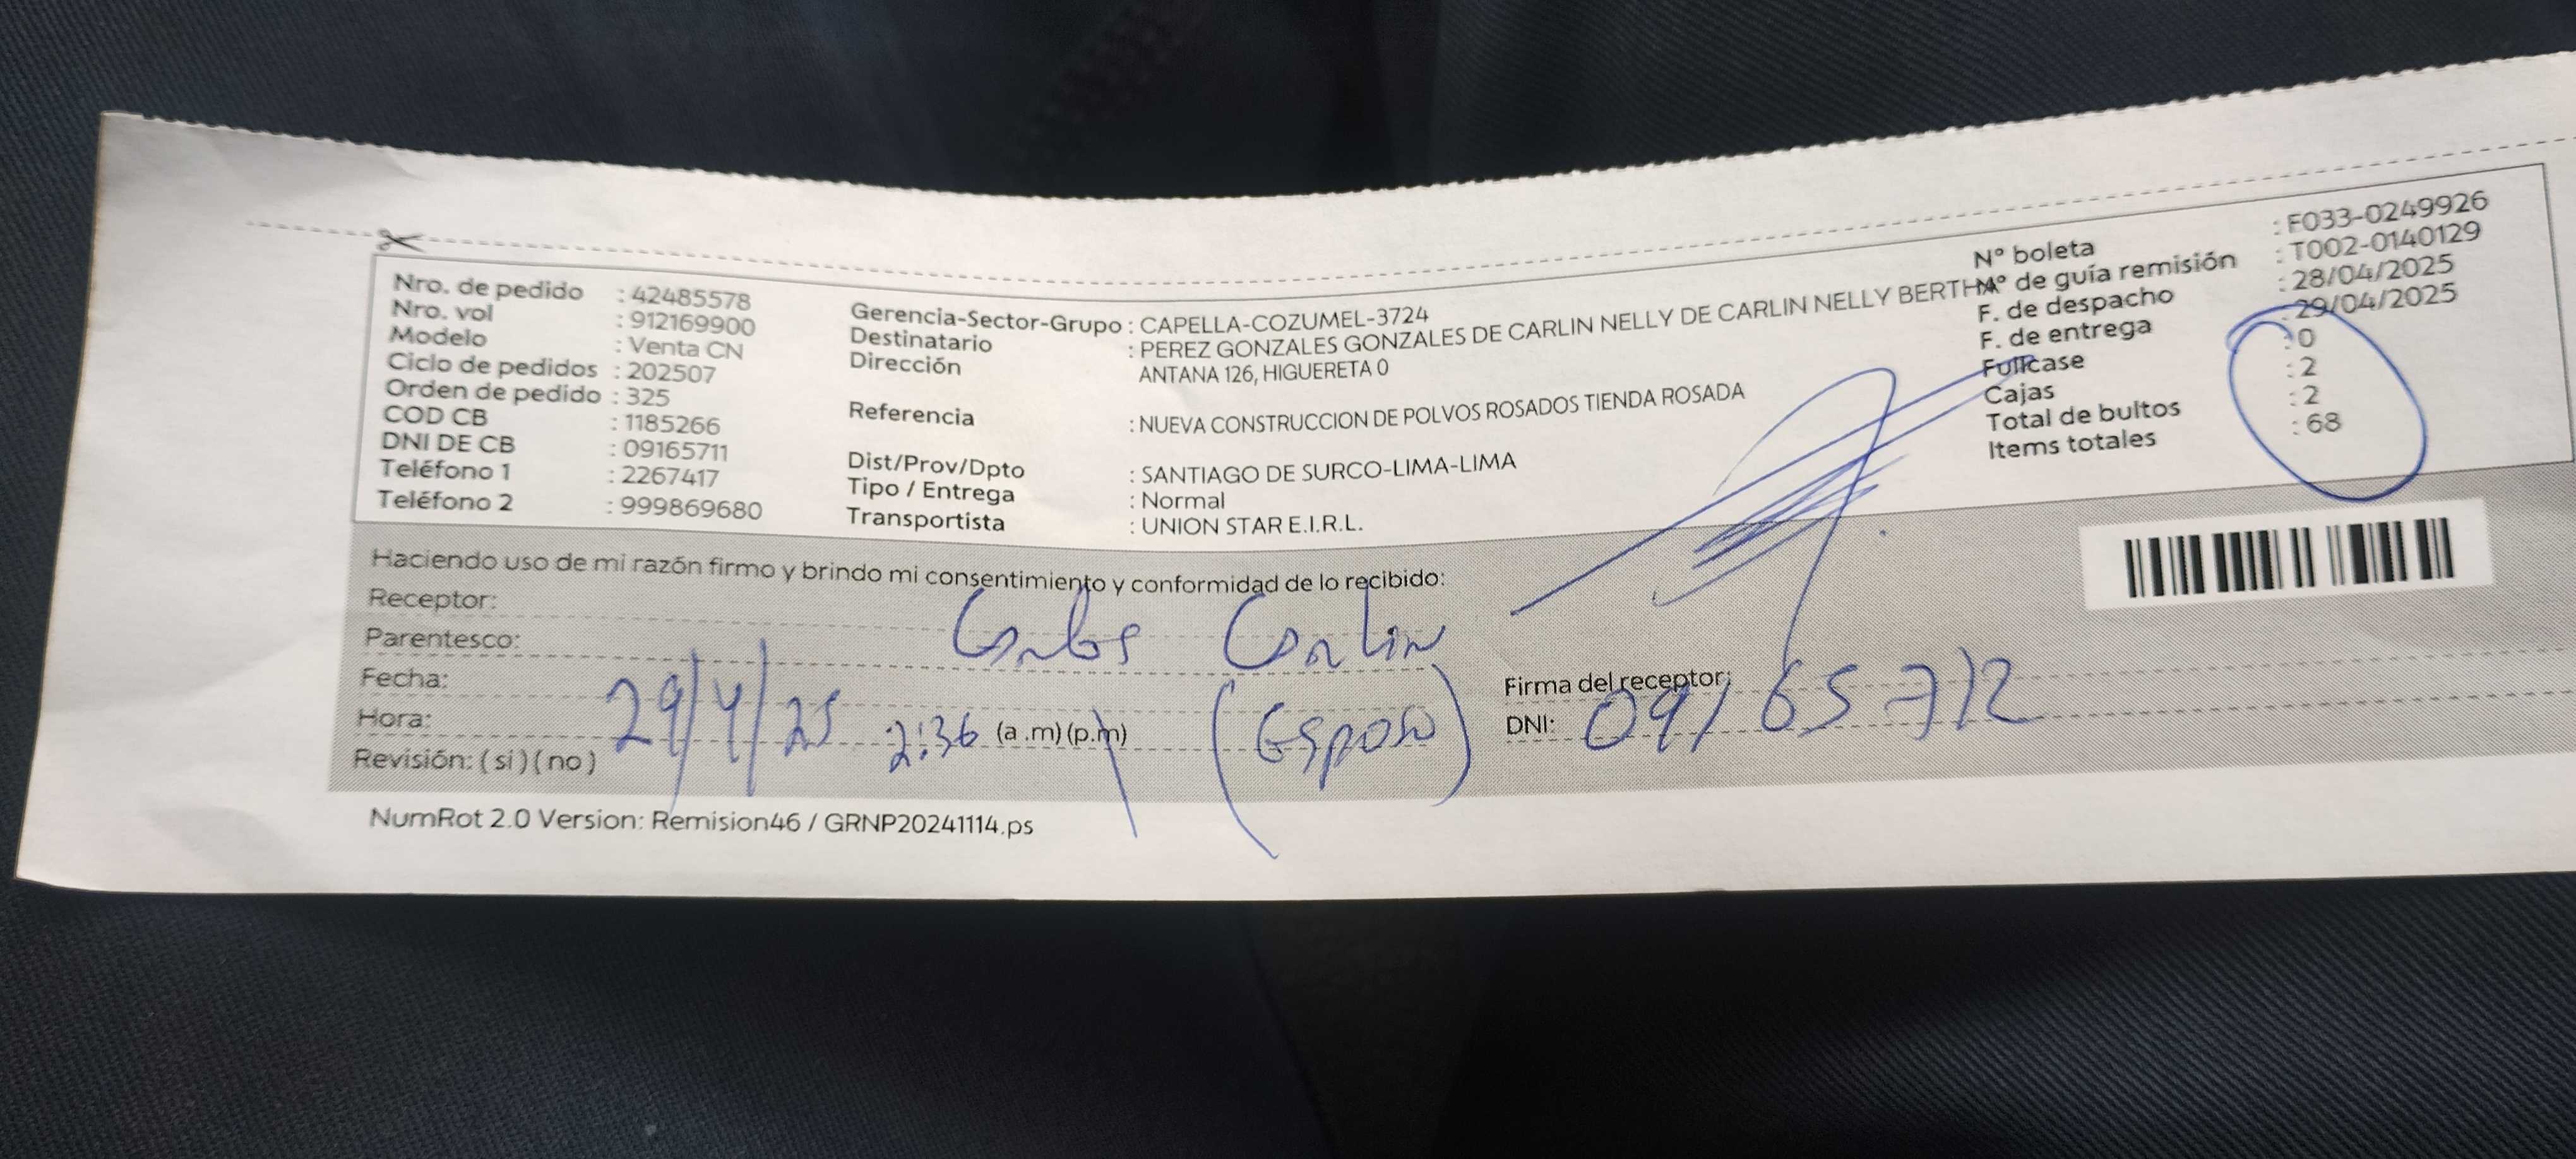 Nro. de pedido : 42485578
Nro. vol : 912169900
Modelo : Venta CN
Ciclo de pedidos : 202507
Orden de pedido : 325
COD CB : 1185266
DNI DE CB : 09165711
Teléfono 1 : 2267417
Teléfono 2 : 999869680
Gerencia-Sector-Grupo : CAPELLA-COZUMEL-3724
Destinatario : PEREZ GONZALES GONZALES DE CARLIN NELLY DE CARLIN NELLY BERTHA
Dirección ANTANA 126, HIGUERETA 0
Referencia : NUEVA CONSTRUCCION DE POLVOS ROSADOS TIENDA ROSADA
Dist/Prov/Dpto : SANTIAGO DE SURCO-LIMA-LIMA
Tipo / Entrega : Normal
Transportista : UNION STAR E.I.R.L.
N° boleta : F033-0249926
N° de guía remisión : T002-0140129
F. de despacho : 28/04/2025
F. de entrega : 29/04/2025
Fullcase : 0
Cajas : 2
Total de bultos : 2
Items totales : 68
Haciendo uso de mi razón firmo y brindo mi consentimiento y conformidad de lo recibido:
Receptor: Carlos Carlin
Parentesco: (Esposo)
Fecha: 29/4/25
Hora: 2:36 (a.m) (p.m)
Revisión: ( si ) ( no )
Firma del receptor:
DNI: 09165712
NumRot 2.0 Version: Remision46 / GRNP20241114.ps